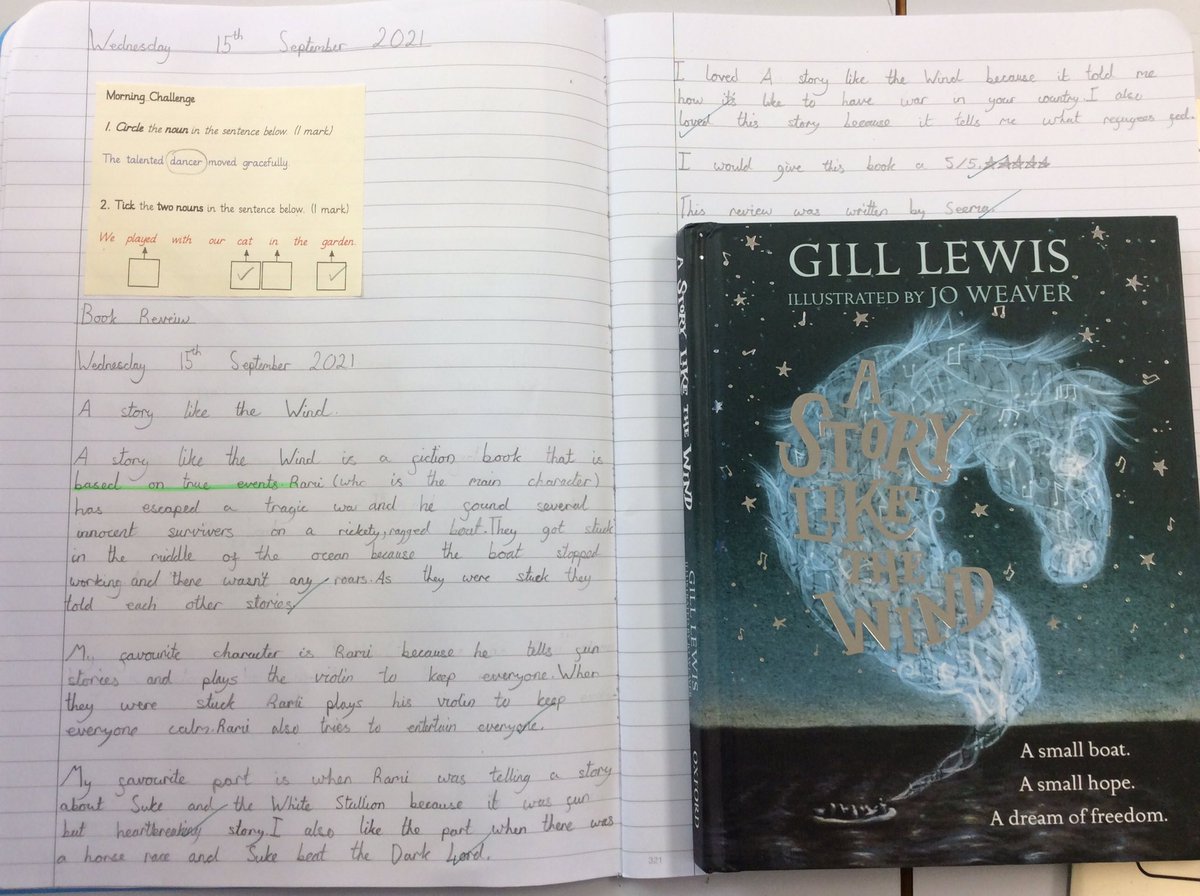 Wednesday 15th September 2021
Morning Challenge
1. Circle the noun in the sentence below. (1 mark)
The talented dancer moved gracefully.
2. Tick the two nouns in the sentence below. (1 mark)
We played with our cat in the garden.
Book Review
Wednesday 15th September 2021
A story like the Wind.
A story like the Wind is a fiction book that is
based on true events. Rami (who is the main character)
has escaped a tragic war and he found several
innocent survivers on a rickety, ragged boat. They got stuck
in the middle of the ocean because the boat stopped
working and there wasn't any roars. As they were stuck they
told each other stories.
My favourite character is Rami because he tells fun
stories and plays the violin to keep everyone. When
they were stuck Rami plays his violin to keep
everyone calm. Rami also tries to entertain everyone.
My favourite part is when Rami was telling a story
about Suke and the White Stallion because it was fun
but heartbreaking story. I also like the part when there was
a horse race and Suke beat the Dark Lord.
321
I loved A story like the Wind because it told me
how it's like to have war in your country. I also
loved this story because it tells me what refugees feel.
I would give this book a 5/5. ☆☆☆☆☆
This review was written by Seema.
GILL LEWIS
ILLUSTRATED BY JO WEAVER
A
STORY
LIKE
THE
WIND
A small boat.
A small hope.
A dream of freedom.
A STORY LIKE THE WIND
GILL LEWIS
OXFORD